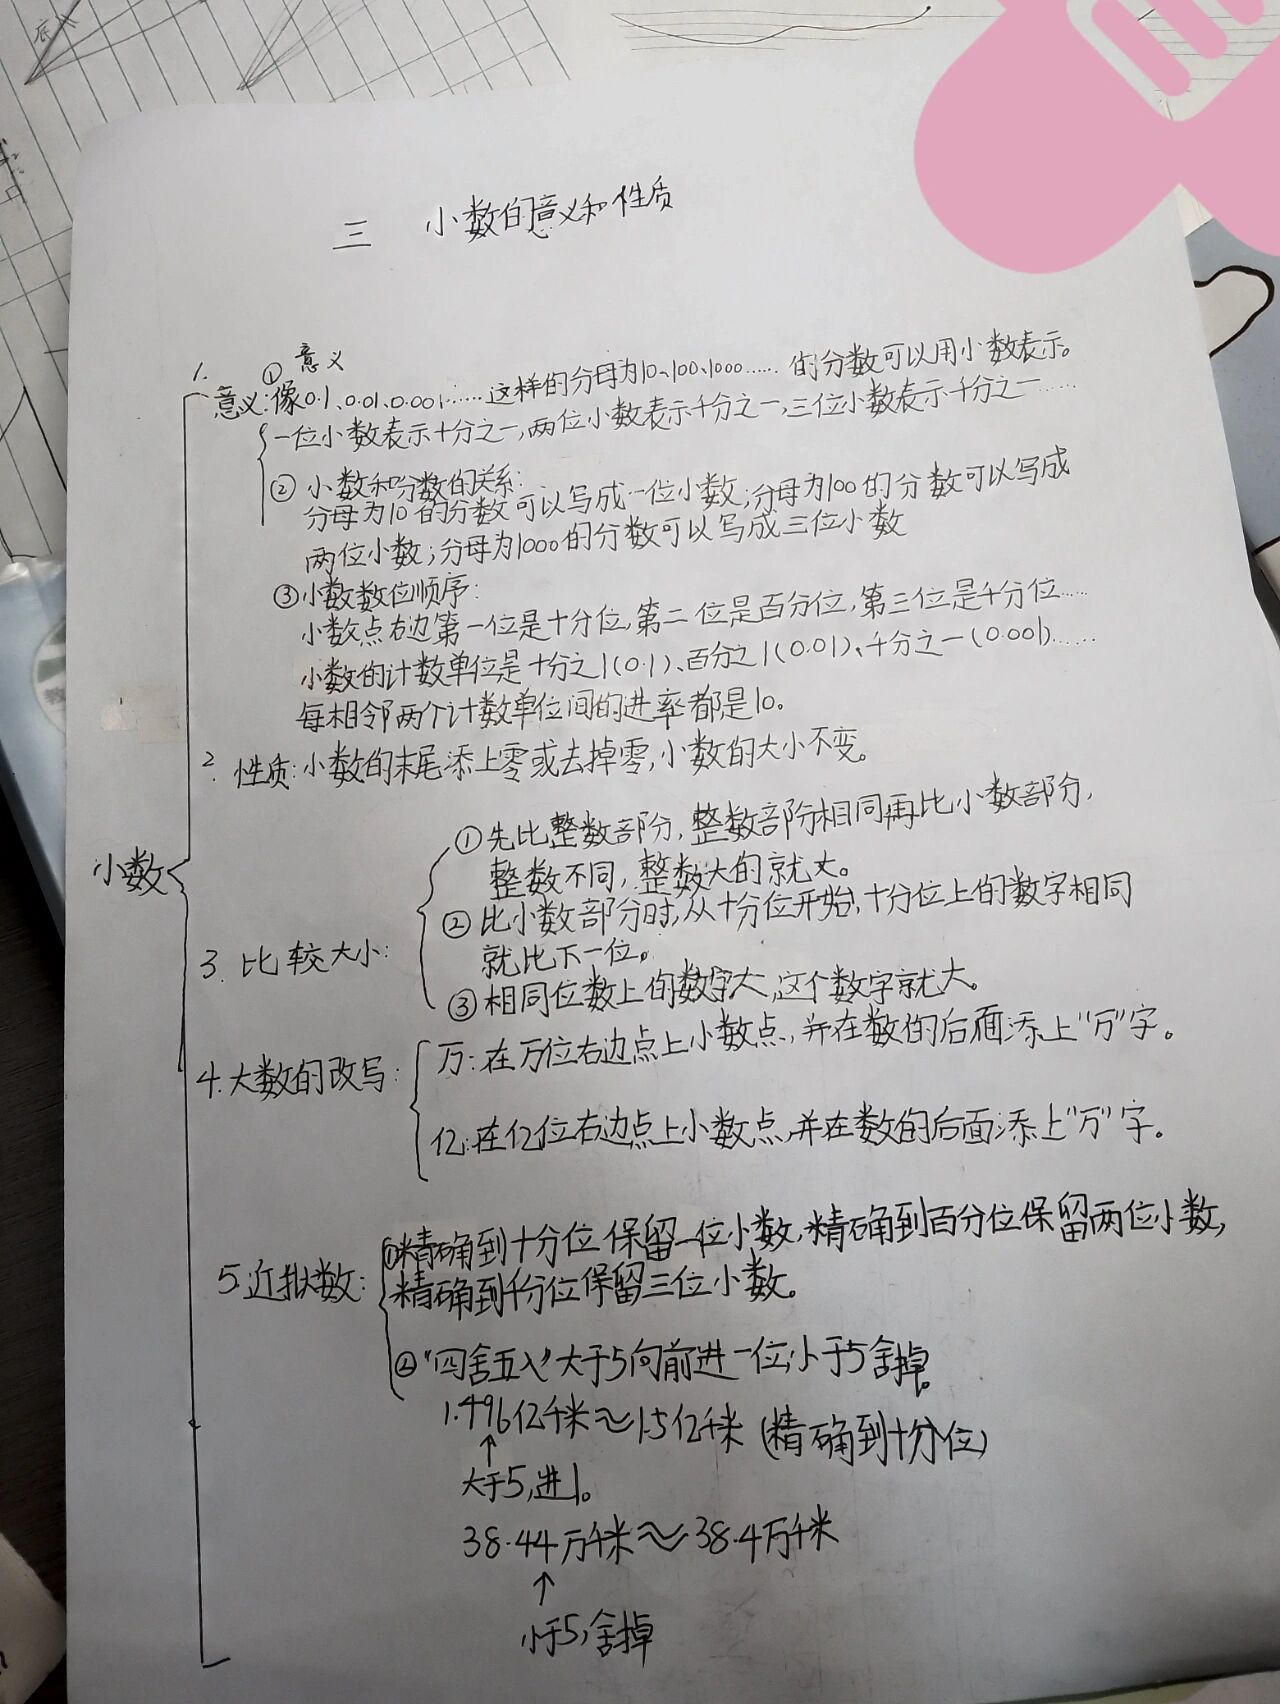 三 小数的意义和性质
1. ① 意义
意义:像0.1、0.01、0.001……这样的分母为10、100、1000……的分数可以用小数表示。
一位小数表示十分之一,两位小数表示千分之一,三位小数表示千分之一……
② 小数和分数的关系:
分母为10的分数可以写成一位小数;分母为100的分数可以写成
两位小数;分母为1000的分数可以写成三位小数
③小数数位顺序:
小数点右边第一位是十分位,第二位是百分位,第三位是千分位……
小数的计数单位是十分之1(0.1)、百分之1(0.01)、千分之一(0.001)……
每相邻两个计数单位间的进率都是10。
2. 性质:小数的末尾添上零或去掉零,小数的大小不变。
小数
①先比整数部分,整数部份相同再比小数部分,
整数不同,整数大的就大。
②比小数部分时,从十分位开始,十分位上的数字相同
就比下一位。
3. 比较大小:
③相同位数上的数字大,这个数字就大。
万:在万位右边点上小数点,并在数的后面添上“万”字。
4.大数的改写:
亿:在亿位右边点上小数点,并在数的后面添上“万”字。
①精确到十分位保留一位小数,精确到百分位保留两位小数,
5.近拟数:
精确到千分位保留三位小数。
②“四舍五入”大于5向前进一位,小于5舍掉。
1.496亿千米≈1.5亿千米 (精确到十分位)
↑
大于5,进1。
38.44万千米≈38.4万千米
↑
小于5,舍掉